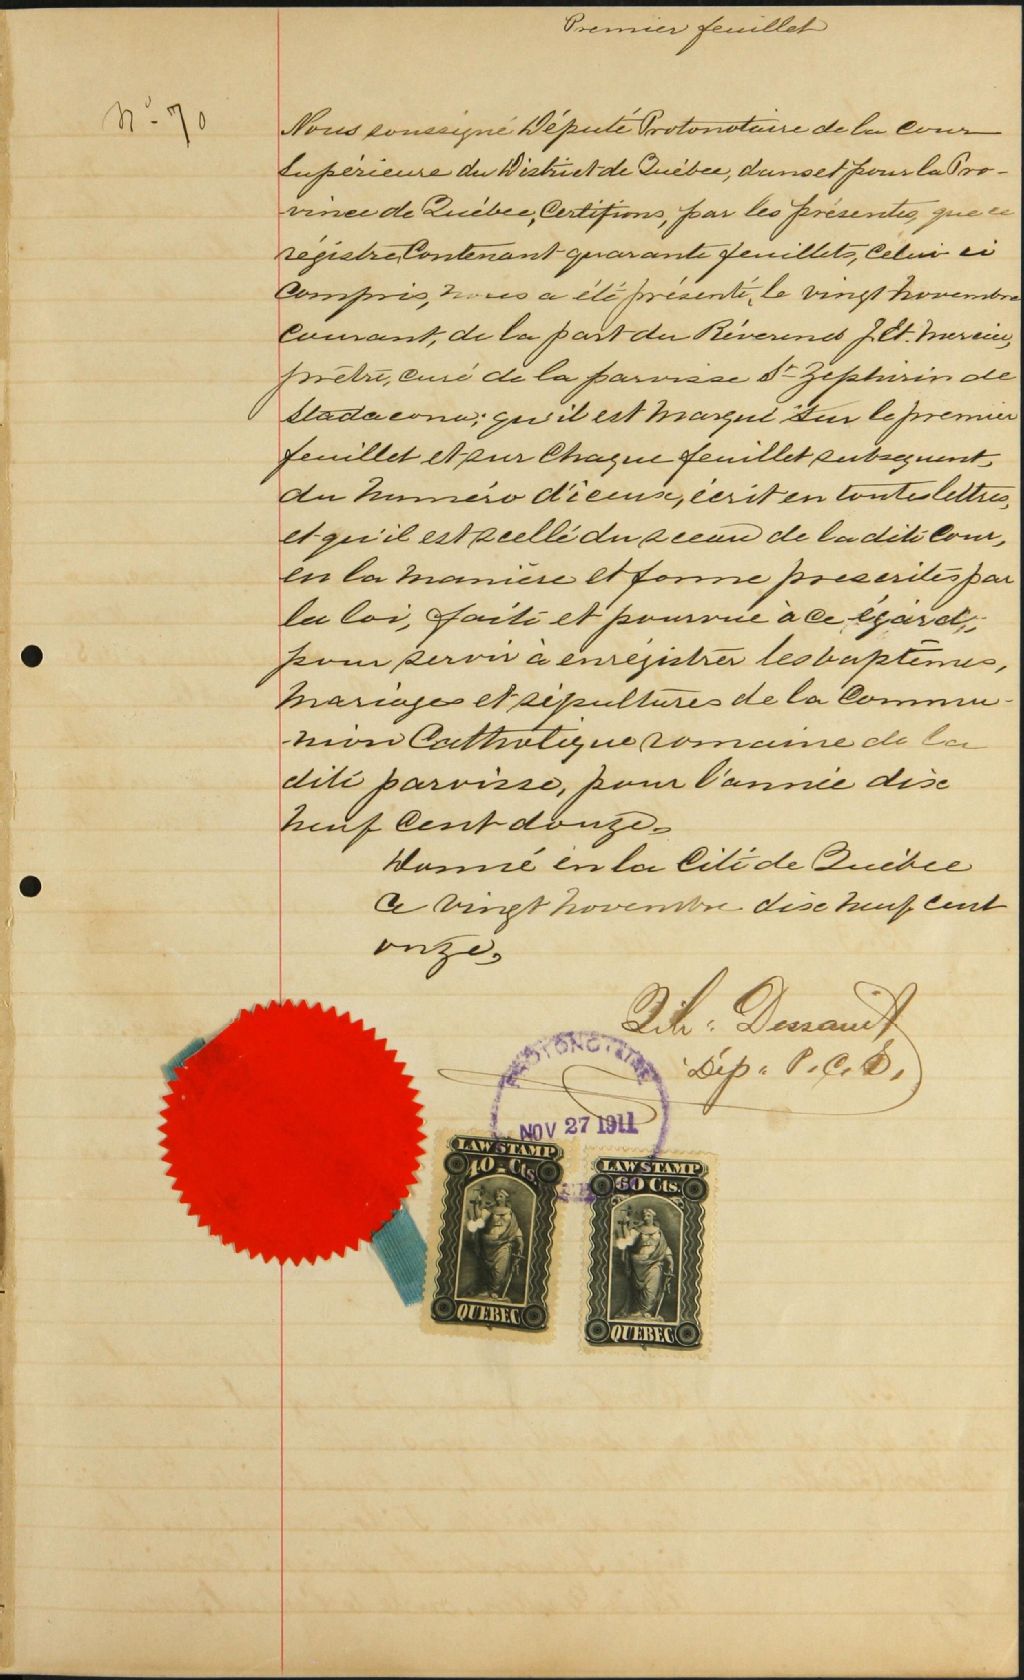 Premier feuillet
No - 70
Nous soussigné Député Protonotaire de la Cour
Supérieure du District de Québec, dans et pour la Pro-
vince de Québec, Certifions, par les présentes, que ce
régistre, Contenant quarante feuillets, celui ci
Compris, nous a été présenté, le vingt novembre
Courant, de la part du Révérend J. Et. Mercier,
prêtre, curé de la paroisse St Zephirin de
Stadacona; qu'il est marqué sur le premier
feuillet et sur chaque feuillet subséquent,
du numéro d'iceux, écrit en toutes lettres,
et qu'il est scellé du sceau de la dite Cour,
en la manière et forme prescrites par
la loi, faite et pourvue à ce égard;
pour servir à enrégistrer les baptêmes,
mariages et sépultures de la Commu-
nion Catholique romaine de la
dite paroisse, pour l'année dix
neuf cent douze.
Donné en la Cité de Québec
Ce vingt novembre dix neuf cent
onze.
Dessault
Dép. P. C. S.
PROTONOTAIRE
NOV 27 1911
LAW STAMP LAW STAMP
40 Cts. 60 Cts.
QUEBEC QUEBEC